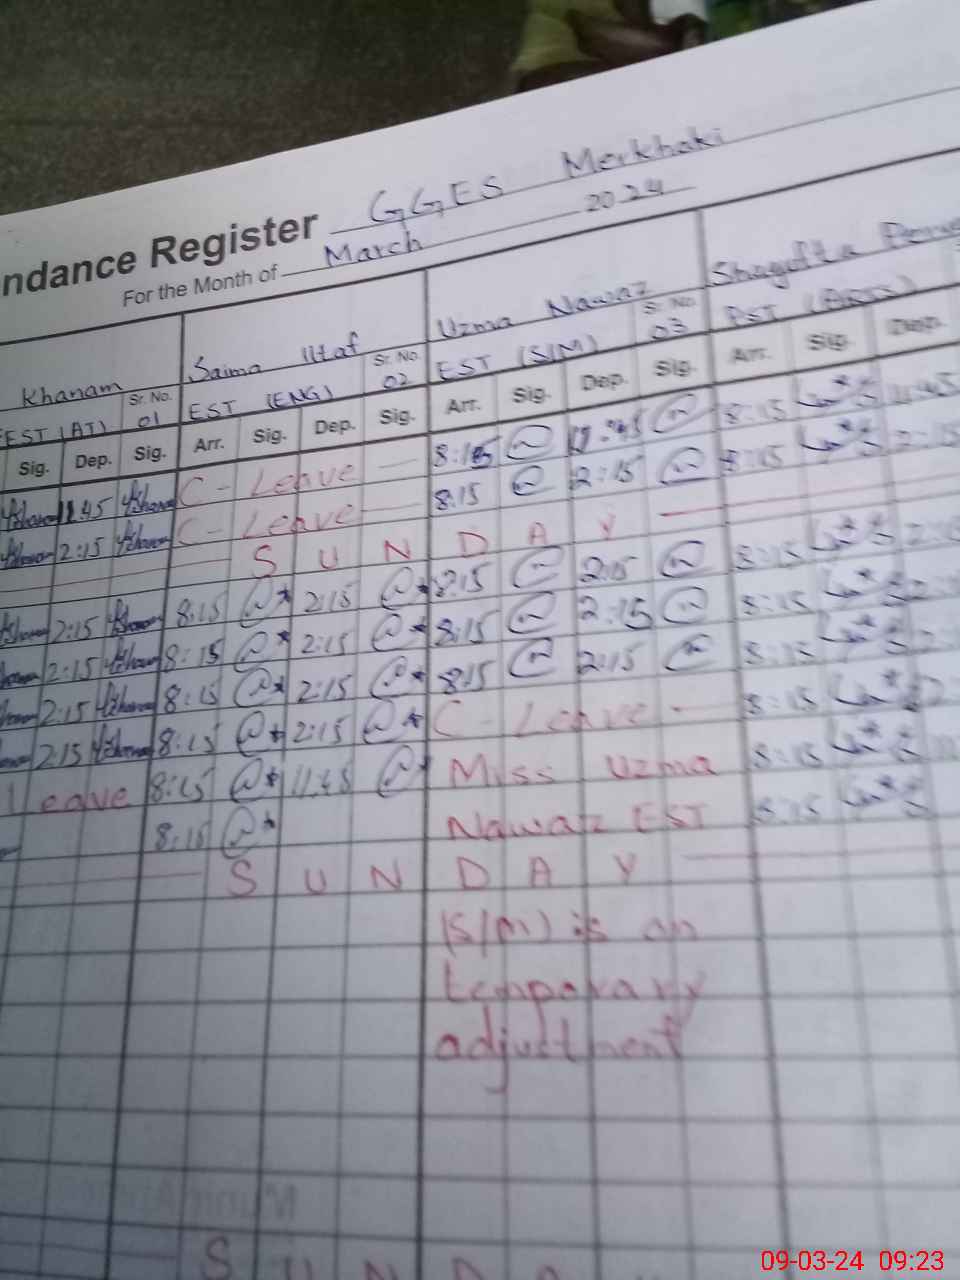 ndance Register GGES Merkhaki
For the Month of March 2024
Khanam Saima Iltaf Uzma Nawaz Shagufta
EST (AT) Sr. No. 01 EST (ENG) Sr. No. 02 EST (S/M) Sr. No. 03 PST (Arts)
Sig. Dep. Sig. Arr. Sig. Dep. Sig. Arr. Sig. Dep. Sig. Arr. Sig. Dep.
11:45 C - Leave — 8:15 11:45 8:15 11:45
2:15 C - Leave — 8:15 2:15 8:15 2:15
S U N D A Y
2:15 8:15 2:15 8:15 2:15 8:15
2:15 8:15 2:15 8:15 2:15 8:15
2:15 8:15 2:15 8:15 2:15 8:15
2:15 8:15 2:15 C - Leave - 8:15
Leave 8:15 11:45 Miss Uzma 8:15
8:15 Nawaz EST 8:15
S U N D A Y
(S/M) is on
temporary
adjustment
S U N D A
09-03-24 09:23